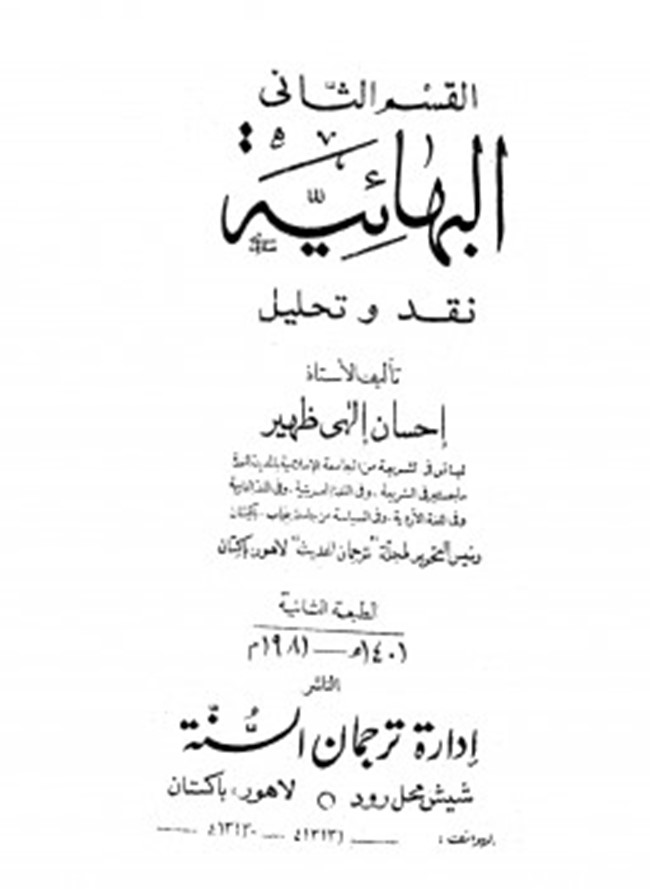 القسم الثاني
البهائية
نقد و تحليل
تأليف الأستاذ
إحسان إلهى ظهير
ليسانس فى الشريعة من الجامعة الإسلامية بالمدينة المنورة
ماجستير فى الشريعة ، وفى اللغة العربية ، وفى اللغة الفارسية
وفى اللغة الأردية ، وفى السياسة من جامعة بنجاب ، باكستان
ورئيس التحرير لمجلة "ترجمان الحديث" لاهور، باكستان
الطبعة الثانية
١٤٠١ھ — ١٩٨١م
الناشر
إدارة ترجمان السُّنّة
شيش محل رود ○ لاهور، باكستان